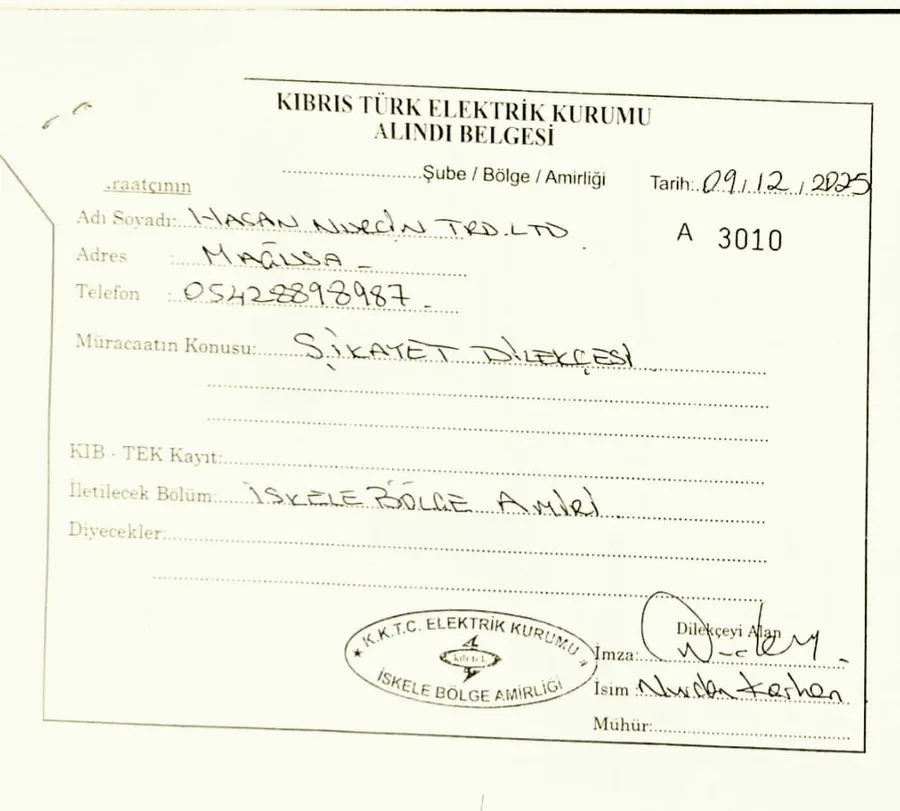 KIBRIS TÜRK ELEKTRİK KURUMU
ALINDI BELGESİ
....................Şube / Bölge / Amirliği Tarih: 09, 12, 2025
.raatçının
Adı Soyadı: HASAN NURÇİN TRD. LTD.
A 3010
Adres : MAĞUSA -
Telefon : 05428898987 -
Müracaatın Konusu: ŞİKAYET DİLEKÇESİ
KIB - TEK Kayıt:
İletilecek Bölüm: İSKELE BÖLGE AMİRİ.
Diyecekler:
K.K.T.C. ELEKTRİK KURUMU
kıb-tek
İSKELE BÖLGE AMİRLİĞİ
Dilekçeyi Alan
İmza:
İsim :
Mühür: